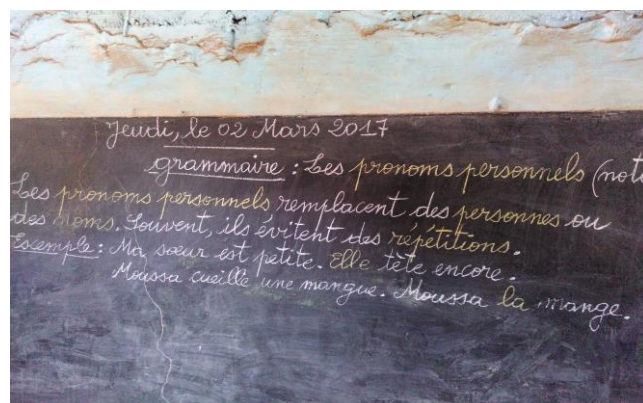 Jeudi, le 02 Mars 2017
grammaire : Les pronoms personnels (noti
Les pronoms personnels remplacent des personnes ou
des noms. Souvent, ils évitent des répétitions.
Exemple : Ma sœur est petite. Elle tète encore.
Moussa cueille une mangue. Moussa la mange.